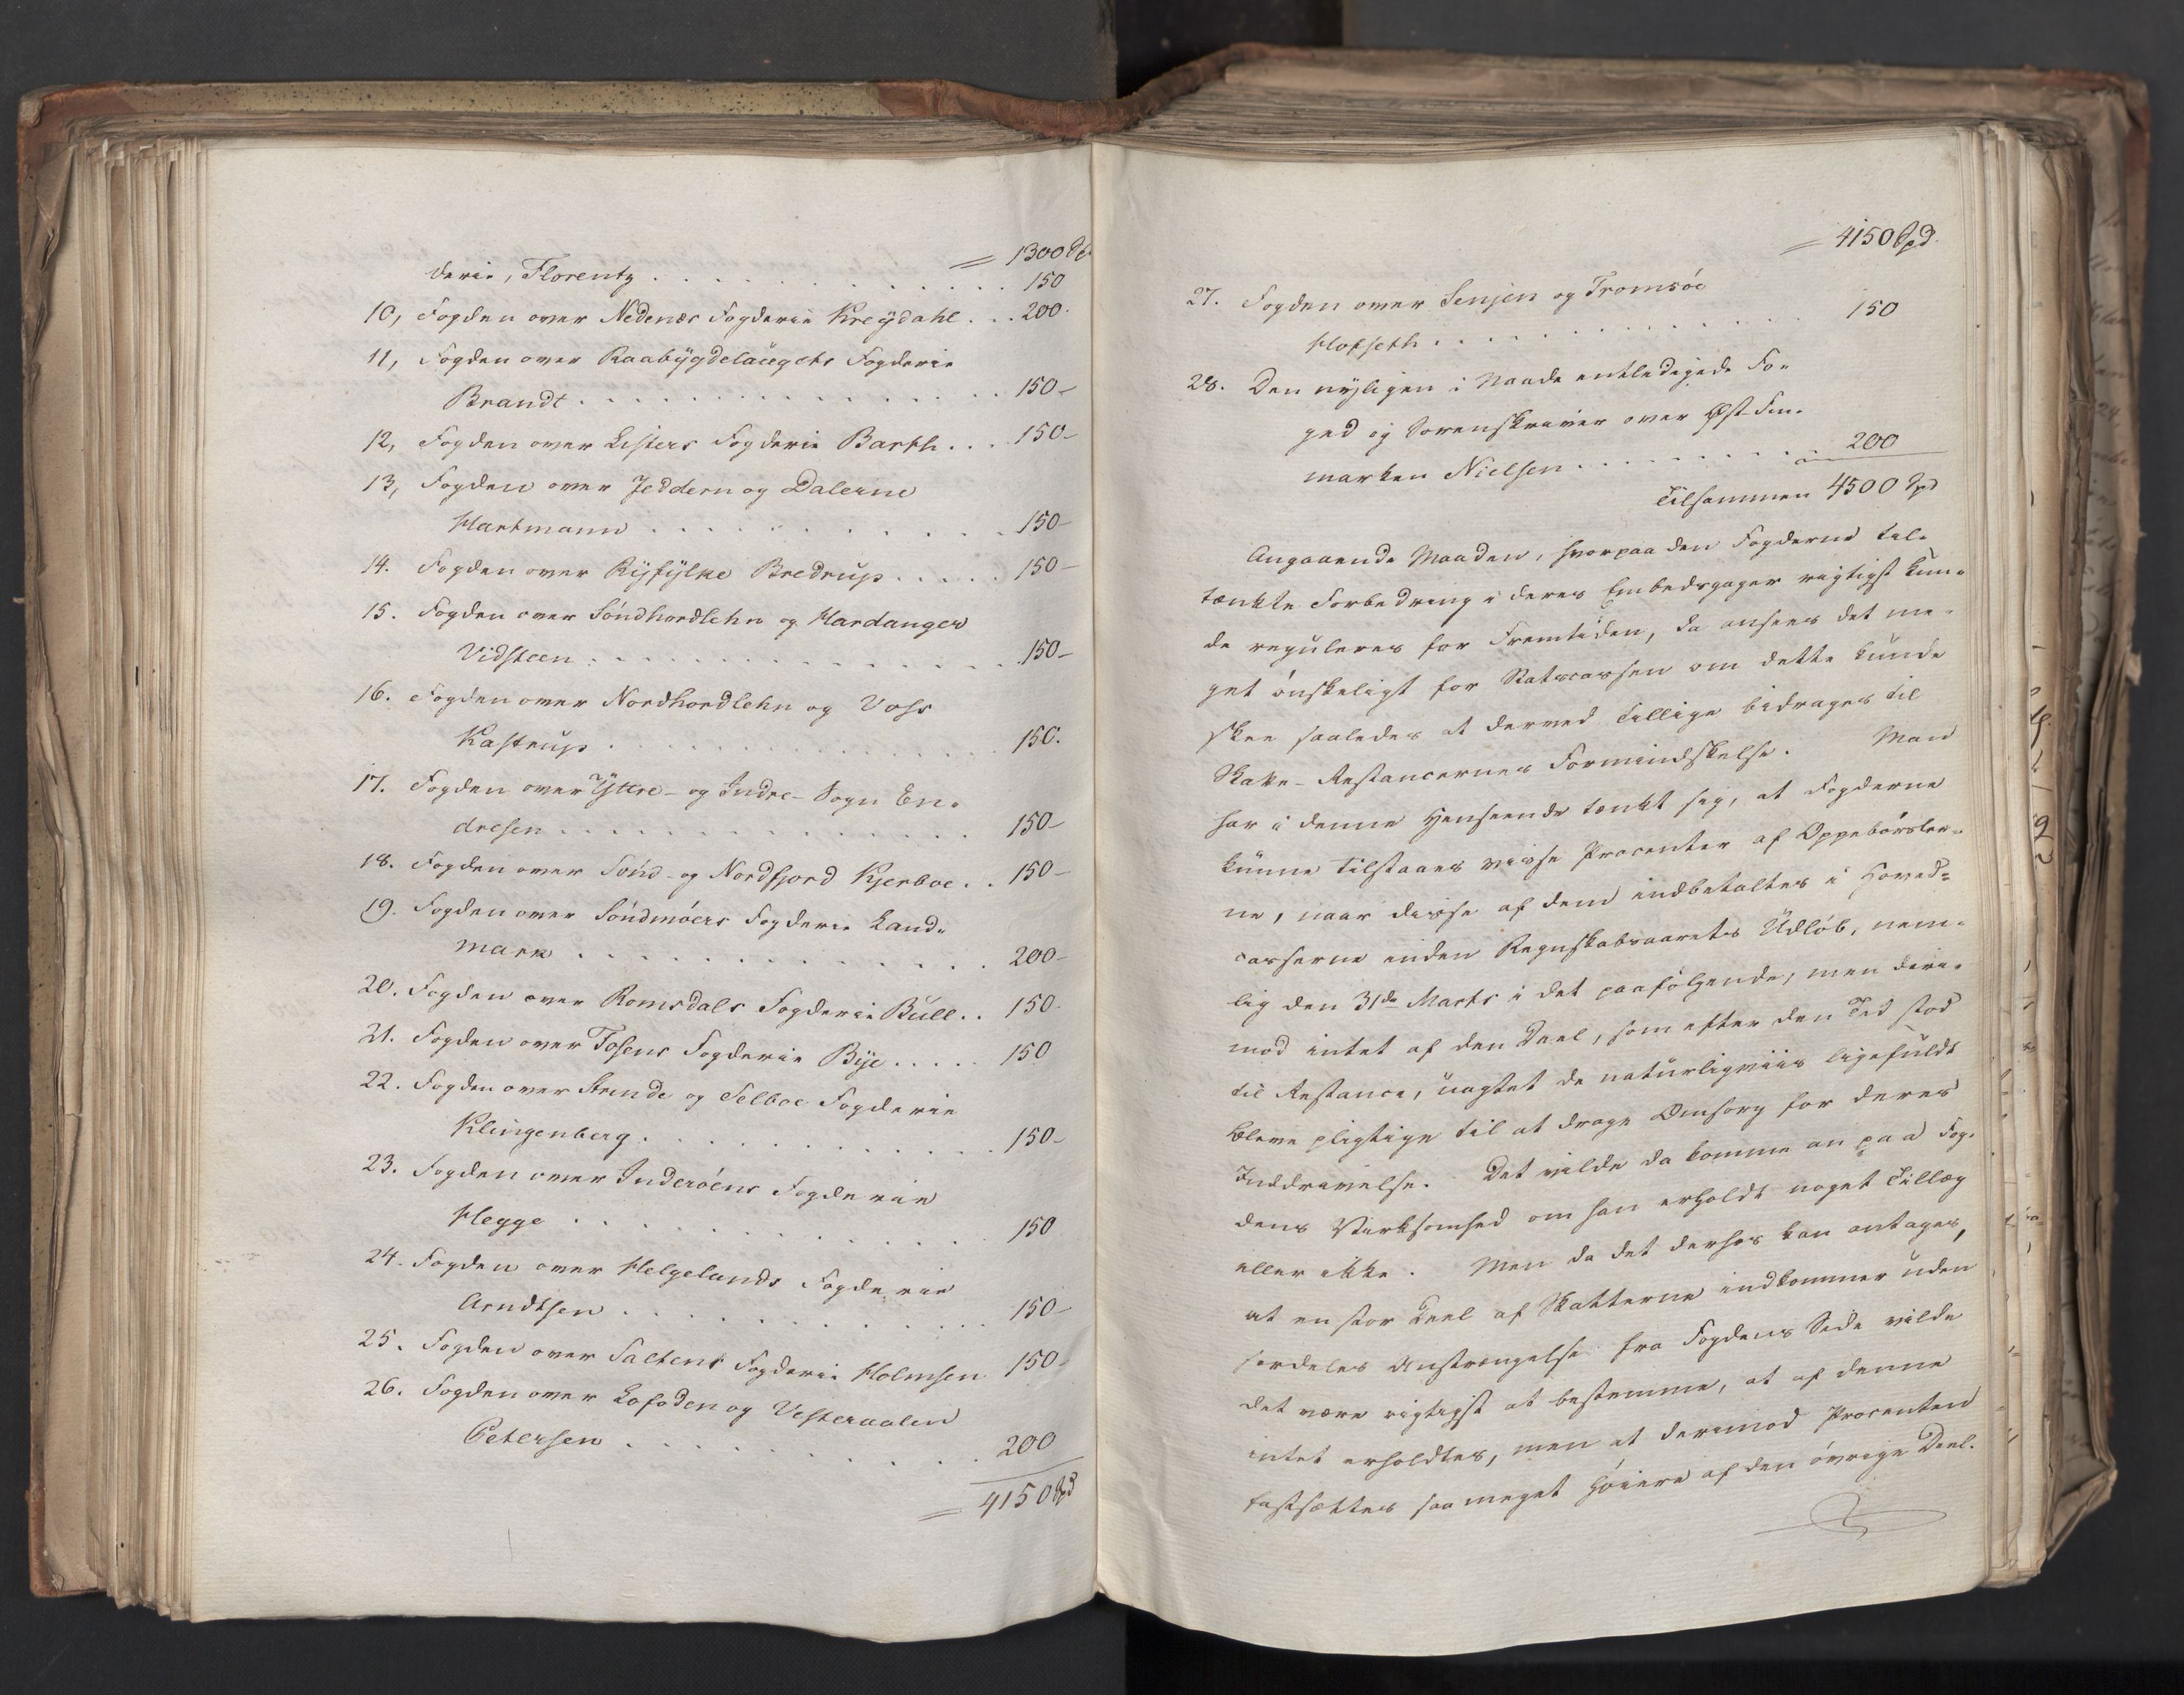 = 1300 Spd.
derie, Florentz . . . . . . . . . . . . . 150
10, Fogden over Nedenæs Fogderie Kreÿdahl . . . 200.
11, Fogden over Raabÿgdelaugets Fogderie
Brandt . . . . . . . . . . . . . . . . 150-
12, Fogden over Listers Fogderie Barth . . . 150-
13, Fogden over Jeddern og Dalerne
Hartmann . . . . . . . . . . . . . 150-
14. Fogden over Rÿfÿlke Bredrup . . . . . 150-
15. Fogden over Söndhordlehn og Hardanger
Vidsteen . . . . . . . . . . . . . . . . 150-
16. Fogden over Nordhordlehn og Voss
Kastrup . . . . . . . . . . . . . . 150.
17. Fogden over Yttre- og Indre- Sogn En-
dresen . . . . . . . . . . . . . . . 150-
18. Fogden over Sönd- og Nordfjord Kjerboe . . 150-
19. Fogden over Söndmöers Fogderie Land-
mark . . . . . . . . . . . . . . 200-
20. Fogden over Romsdals Fogderie Bull . . 150.
21. Fogden over Fosens Fogderie Bÿe . . . . . 150
22. Fogden over Strinde og Selboe Fogderie
Klingenberg . . . . . . . . . . . . . 150-
23. Fogden over Inderöens Fogderie
Hegge . . . . . . . . . . . . . . 150
24. Fogden over Helgelands Fogderie
Arndtsen . . . . . . . . . . . . . 150-
25. Fogden over Saltens Fogderie Holmsen 150-
26. Fogden over Lofoden og Vesteraalen
Petersen . . . . . . . . . . . . 200
= 4150 Spd
= 4150 Spd.
27. Fogden over Senjen og Tromsöe
Hofseth . . . . . . . . . . . . . . 150
28. Den nÿligen i Naade entledigede Fo-
ged og Sorenskriver over Øst-Fin-
marken Nielsen . . . . . . . . . 200
Tilsammen 4500 Spd
Angaaende Maaden, hvorpaa den Fogderne til-
tænkte Forbedring i deres Embedsgager rigtigst kun-
de reguleres for Fremtiden, da ansees det me-
get önskeligt for Statscassen om dette kunde
skee saaledes at derved tillige bidrages til
Skatte-Restancernes Formindskelse. Man
har i denne Henseende tænkt sig, at Fogderne
kunne tilstaaes visse Procenter af Oppebörsler-
ne, naar disse af dem indbetaltes i Hoved-
casserne inden Regnskabsaarets Udlöb, nem-
lig den 31de Marts i det paafölgende, men deri-
mod intet af den Deel, som efter den Tid stod
til Restance, uagtet de naturligviis ligefuldt
bleve pligtige til at drage Omsorg for deres
Inddrivelse. Det vilde da komme an paa Fog-
dens Virksomhed om han erholdt noget Tillæg
eller ikke. Men da det derhos kan antages,
at en stor Deel af Skatterne indkommer uden
særdeles Anstrængelse fra Fogdens Side vilde
det være rigtigst at bestemme, at af denne
intet erholdtes, men at derimod Procenten
fastsættes saa meget höiere af den övrige Deel.